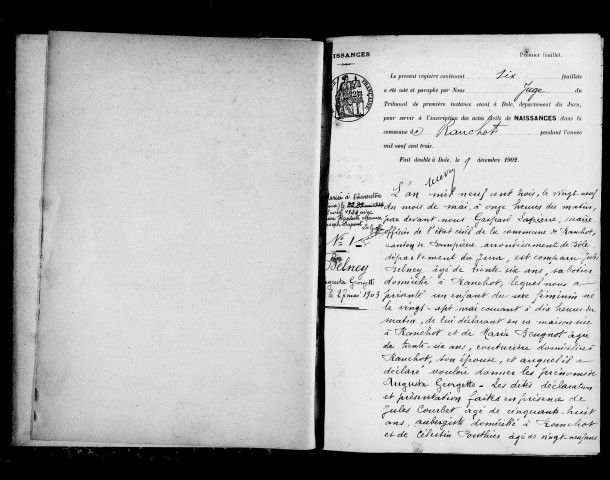 NAISSANCES
Premier feuillet.
Le présent registre contenant six feuillets
a été coté et paraphé par Nous Juge du
Tribunal de première instance séant à Dole, département du Jura,
pour servir à l'inscription des actes civils de NAISSANCES dans la
commune de Ranchot pendant l'année
mil neuf cent trois.
Fait double à Dole, le 9 décembre 1902.
L'an mil neuf cent trois, le vingt-neuf
du mois de mai, à onze heures du matin,
par devant nous Gaspard Lapierre, maire
officier de l'état civil de la commune de Ranchot,
canton de Dampierre arrondissement de Dole
département du Jura, est comparu Jules
Belney âgé de trente-six ans, sabotier
domicilié à Ranchot, lequel nous a
présenté un enfant du sexe féminin né
le vingt-sept mai courant à dix heures du
matin, de lui déclarant en sa maison sise
à Ranchot et de Maria Beugnot âgée
de trente-six ans, couturière domiciliée à
Ranchot, son épouse, et auquel il a
déclaré vouloir donner les prénoms de
Augusta Georgette - Les dites déclaration
et présentation faites en présence de
Jules Courbet âgé de cinquante-huit
ans, aubergiste domicilié à Ranchot
et de Célestin Ponthier âgé de vingt-neuf ans
Mariée à
1924 avec
N° 1
Belney
Augusta Georgette
le 27 mai 1903